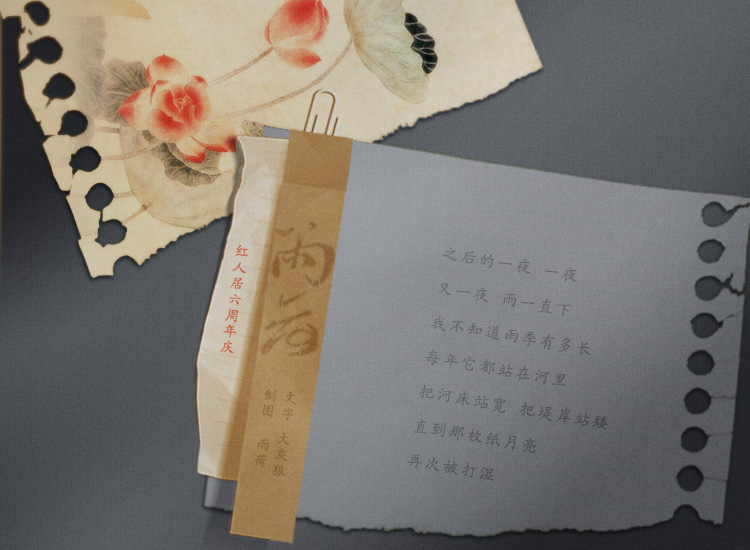 红人居六周年庆
雨荷
文字 大灰狼
制图 雨荷
之后的一夜 一夜
又一夜 雨一直下
我不知道雨季有多长
每年它都站在河里
把河床站宽 把堤岸站矮
直到那枚纸月亮
再次被打湿